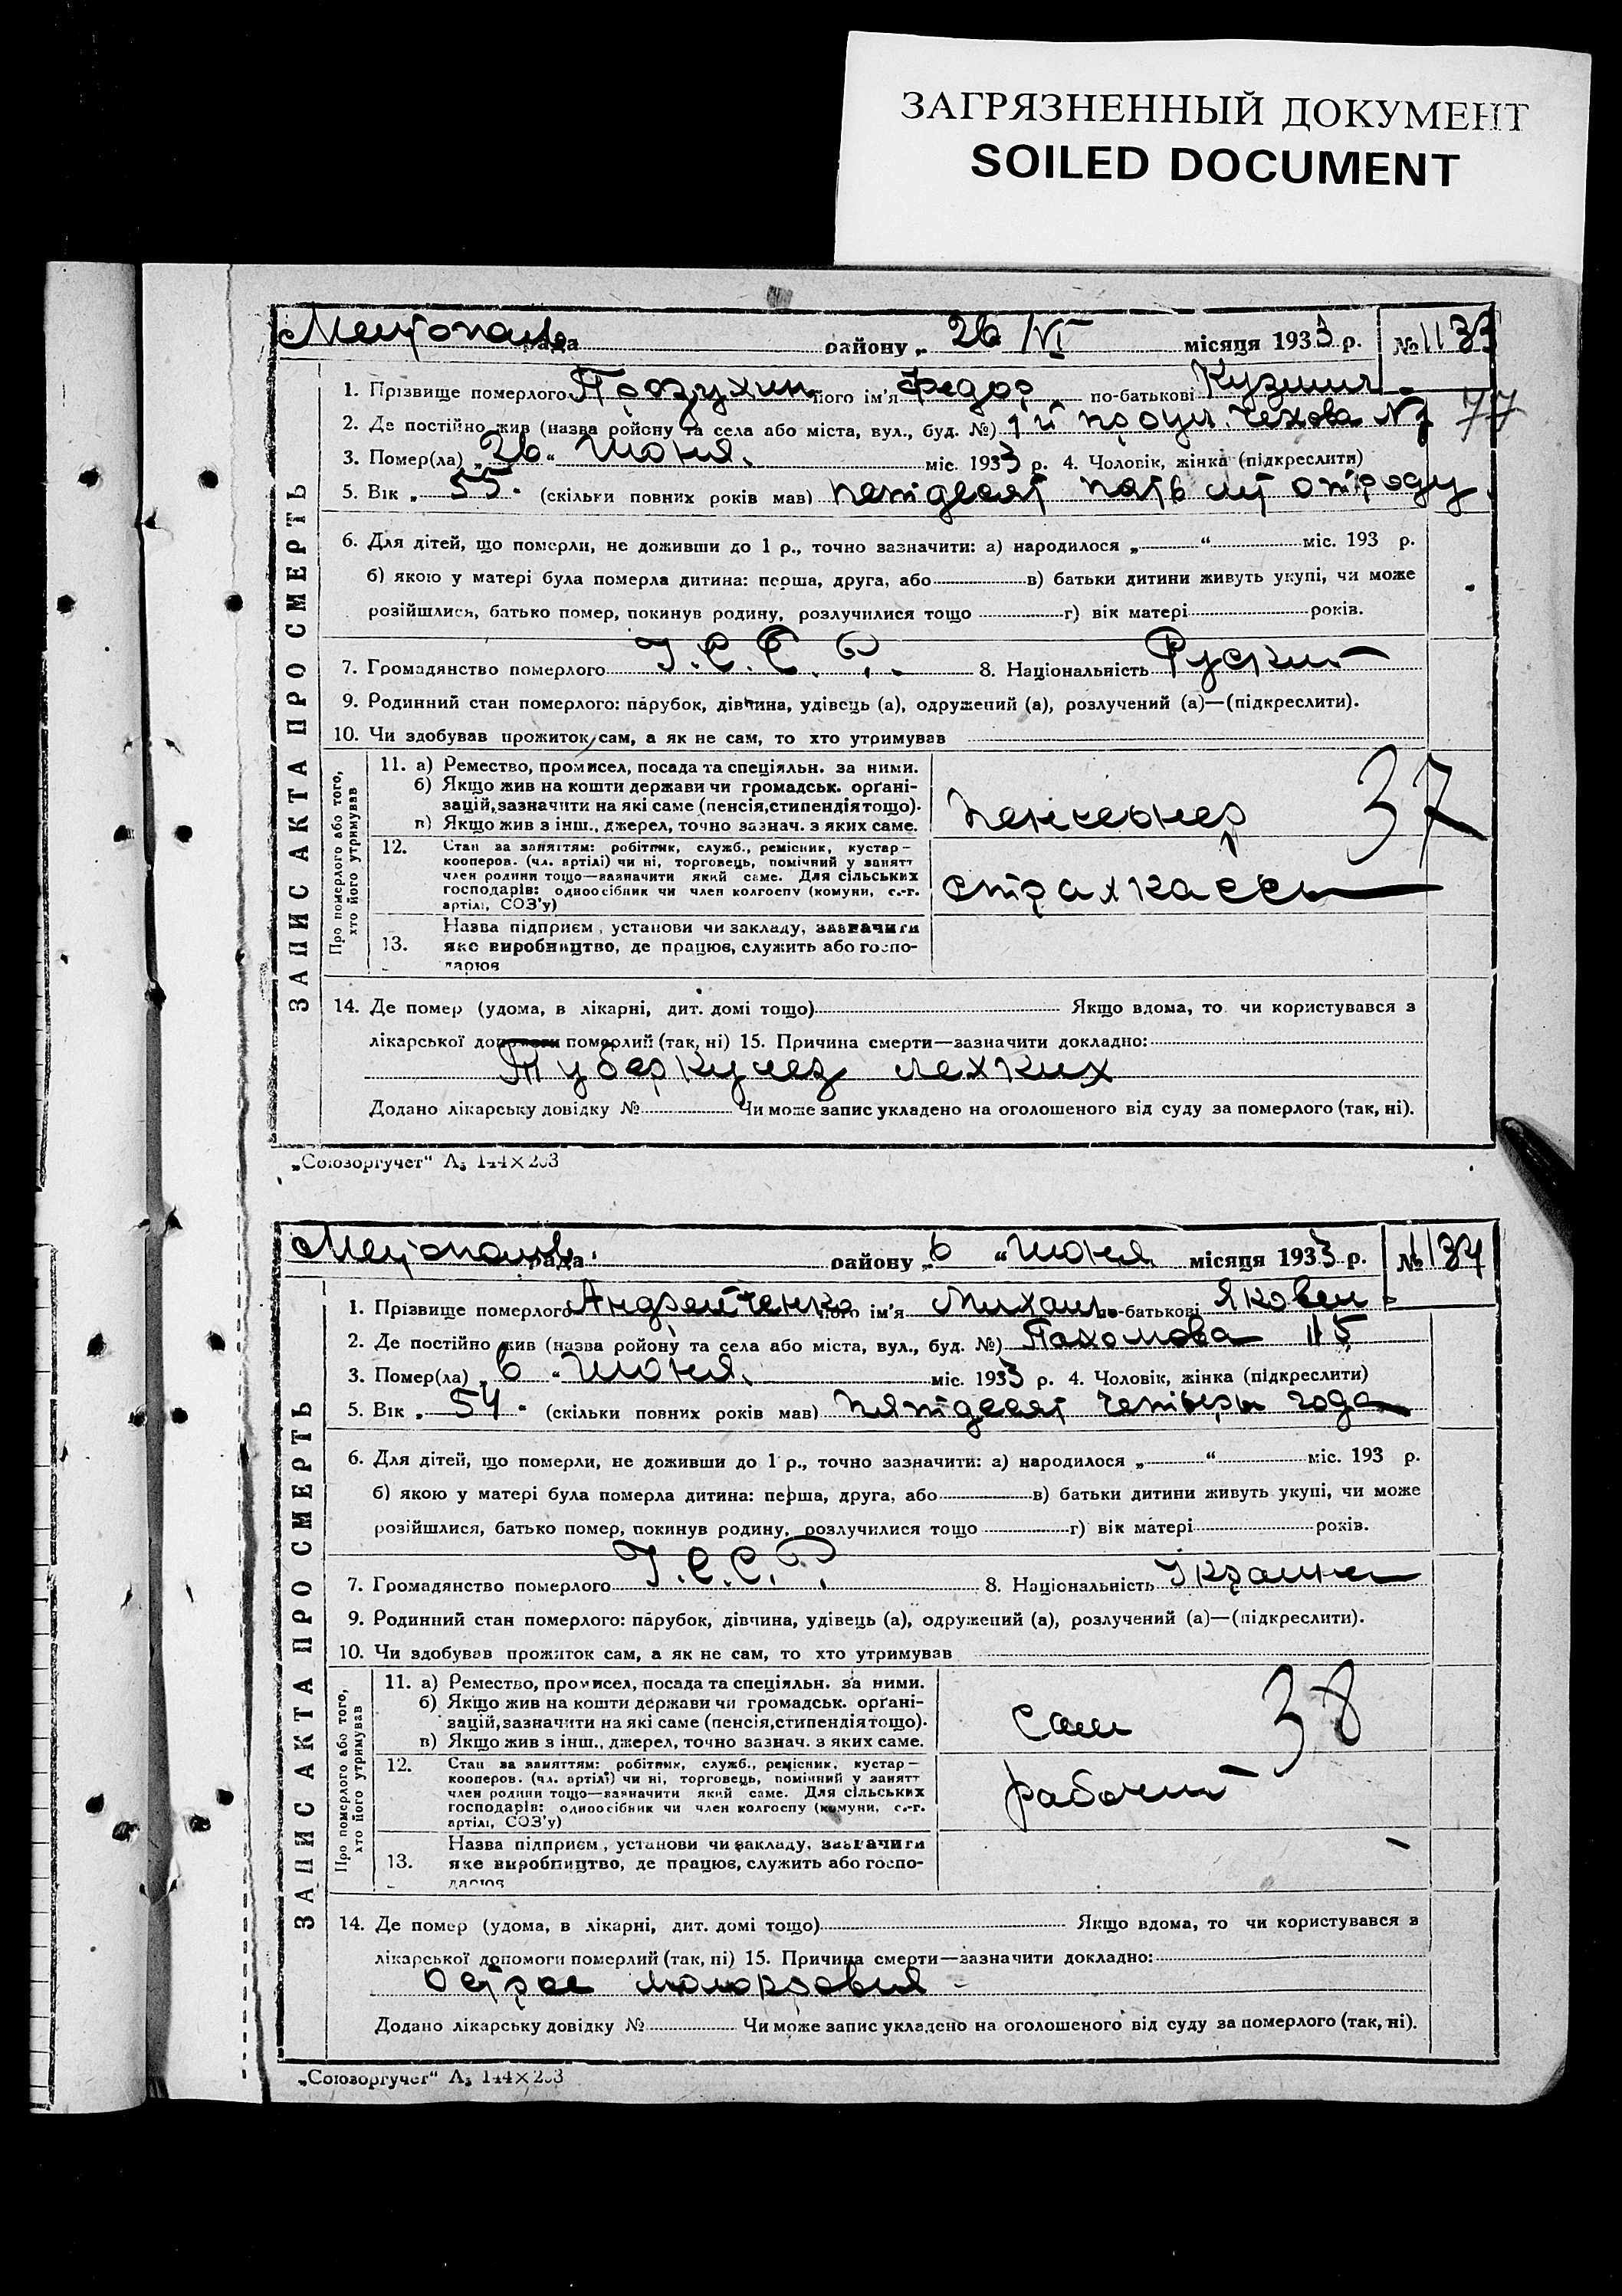 ЗАГРЯЗНЕННЫЙ ДОКУМЕНТ
SOILED DOCUMENT
рада району „ 26 VI місяця 1933 р. № 1133
1. Прізвище померлого його ім'я Федор по-батькові Кузьмич
77
2. Де постійно жив (назва ройону та села або міста, вул., буд. №) 1й проул. Чехова №7
3. Помер(ла) „26“ Июня. міс. 1933 р. 4. Чоловік, жінка (підкреслити)
5. Вік „ 55. (скільки повних років мав) петдесят пять лет отроду
6. Для дітей, що померли, не доживши до 1 р., точно зазначити: а) народилося „ “ міс. 193 р.
б) якою у матері була померла дитина: перша, друга, або в) батьки дитини живуть укупі, чи може
розійшлися, батько помер, покинув родину, розлучилися тощо г) вік матері років.
7. Громадянство померлого У.С.С.Р. 8. Національність Руский
9. Родинний стан померлого: парубок, дівчина, удівець (а), одружений (а), розлучений (а)—(підкреслити).
10. Чи здобував прожиток сам, а як не сам, то хто утримував
ЗАПИС АКТА ПРО СМЕРТЬ
Про померлого або того, хто його утримував
11. а) Ремество, промисел, посада та спеціяльн. за ними.
б) Якщо жив на кошти держави чи громадськ. орґані-
зацій, зазначити на які саме (пенсія, стипендія тощо).
в) Якщо жив з інш., джерел, точно зазнач. з яких саме.
пенсионер 37
12. Стан за заняттям: робітник, служб., ремісник, кустар—
кооперов. (чл. артілі) чи ні, торговець, помічний у занятт
член родини тощо—зазначити який саме. Для сільських
господарів: одноосібник чи член колгоспу (комуни, с.-г.
артілі, СОЗ'у)
страхкассы
13. Назва підприєм, установи чи закладу, зазначити
яке виробництво, де працює, служить або госпо-
дарює
14. Де помер (удома, в лікарні, дит. домі тощо) Якщо вдома, то чи користувався з
лікарської допомоги померлий (так, ні) 15. Причина смерти—зазначити докладно:
Туберкулез лехких
Додано лікарську довідку № Чи може запис укладено на оголошеного від суду за померлого (так, ні).
„Союзоргучет“ А₅ 144×203
рада району „6 “ Июня місяця 1933 р. № 1134
1. Прізвище померлого Андрейченко його ім'я Михаил по-батькові Яковен
2. Де постійно жив (назва ройону та села або міста, вул., буд. №) Пахомова 115
3. Помер(ла) „ 6 “ Июня. міс. 1933 р. 4. Чоловік, жінка (підкреслити)
5. Вік „ 54. (скільки повних років мав) пятдесят четыры года
6. Для дітей, що померли, не доживши до 1 р., точно зазначити: а) народилося „ “ міс. 193 р.
б) якою у матері була померла дитина: перша, друга, або в) батьки дитини живуть укупі, чи може
розійшлися, батько помер, покинув родину, розлучилися тощо г) вік матері років.
7. Громадянство померлого У.С.С.Р. 8. Національність Украинец
9. Родинний стан померлого: парубок, дівчина, удівець (а), одружений (а), розлучений (а)—(підкреслити).
10. Чи здобував прожиток сам, а як не сам, то хто утримував
ЗАПИС АКТА ПРО СМЕРТЬ
Про померлого або того, хто його утримував
11. а) Ремество, промисел, посада та спеціяльн. за ними.
б) Якщо жив на кошти держави чи громадськ. орґані-
зацій, зазначити на які саме (пенсія, стипендія тощо).
в) Якщо жив з інш., джерел, точно зазнач. з яких саме.
сам 38
12. Стан за заняттям: робітник, служб., ремісник, кустар—
кооперов. (чл. артілі) чи ні, торговець, помічний у занятт
член родини тощо—зазначити який саме. Для сільських
господарів: одноосібник чи член колгоспу (комуни, с.-г.
артілі, СОЗ'у)
рабочий
13. Назва підприєм, установи чи закладу, зазначити
яке виробництво, де працює, служить або госпо-
дарює
14. Де помер (удома, в лікарні, дит. домі тощо) Якщо вдома, то чи користувався з
лікарської допомоги померлий (так, ні) 15. Причина смерти—зазначити докладно:
Острое малокровия
Додано лікарську довідку № Чи може запис укладено на оголошеного від суду за померлого (так, ні).
„Союзоргучет“ А₅ 144×203